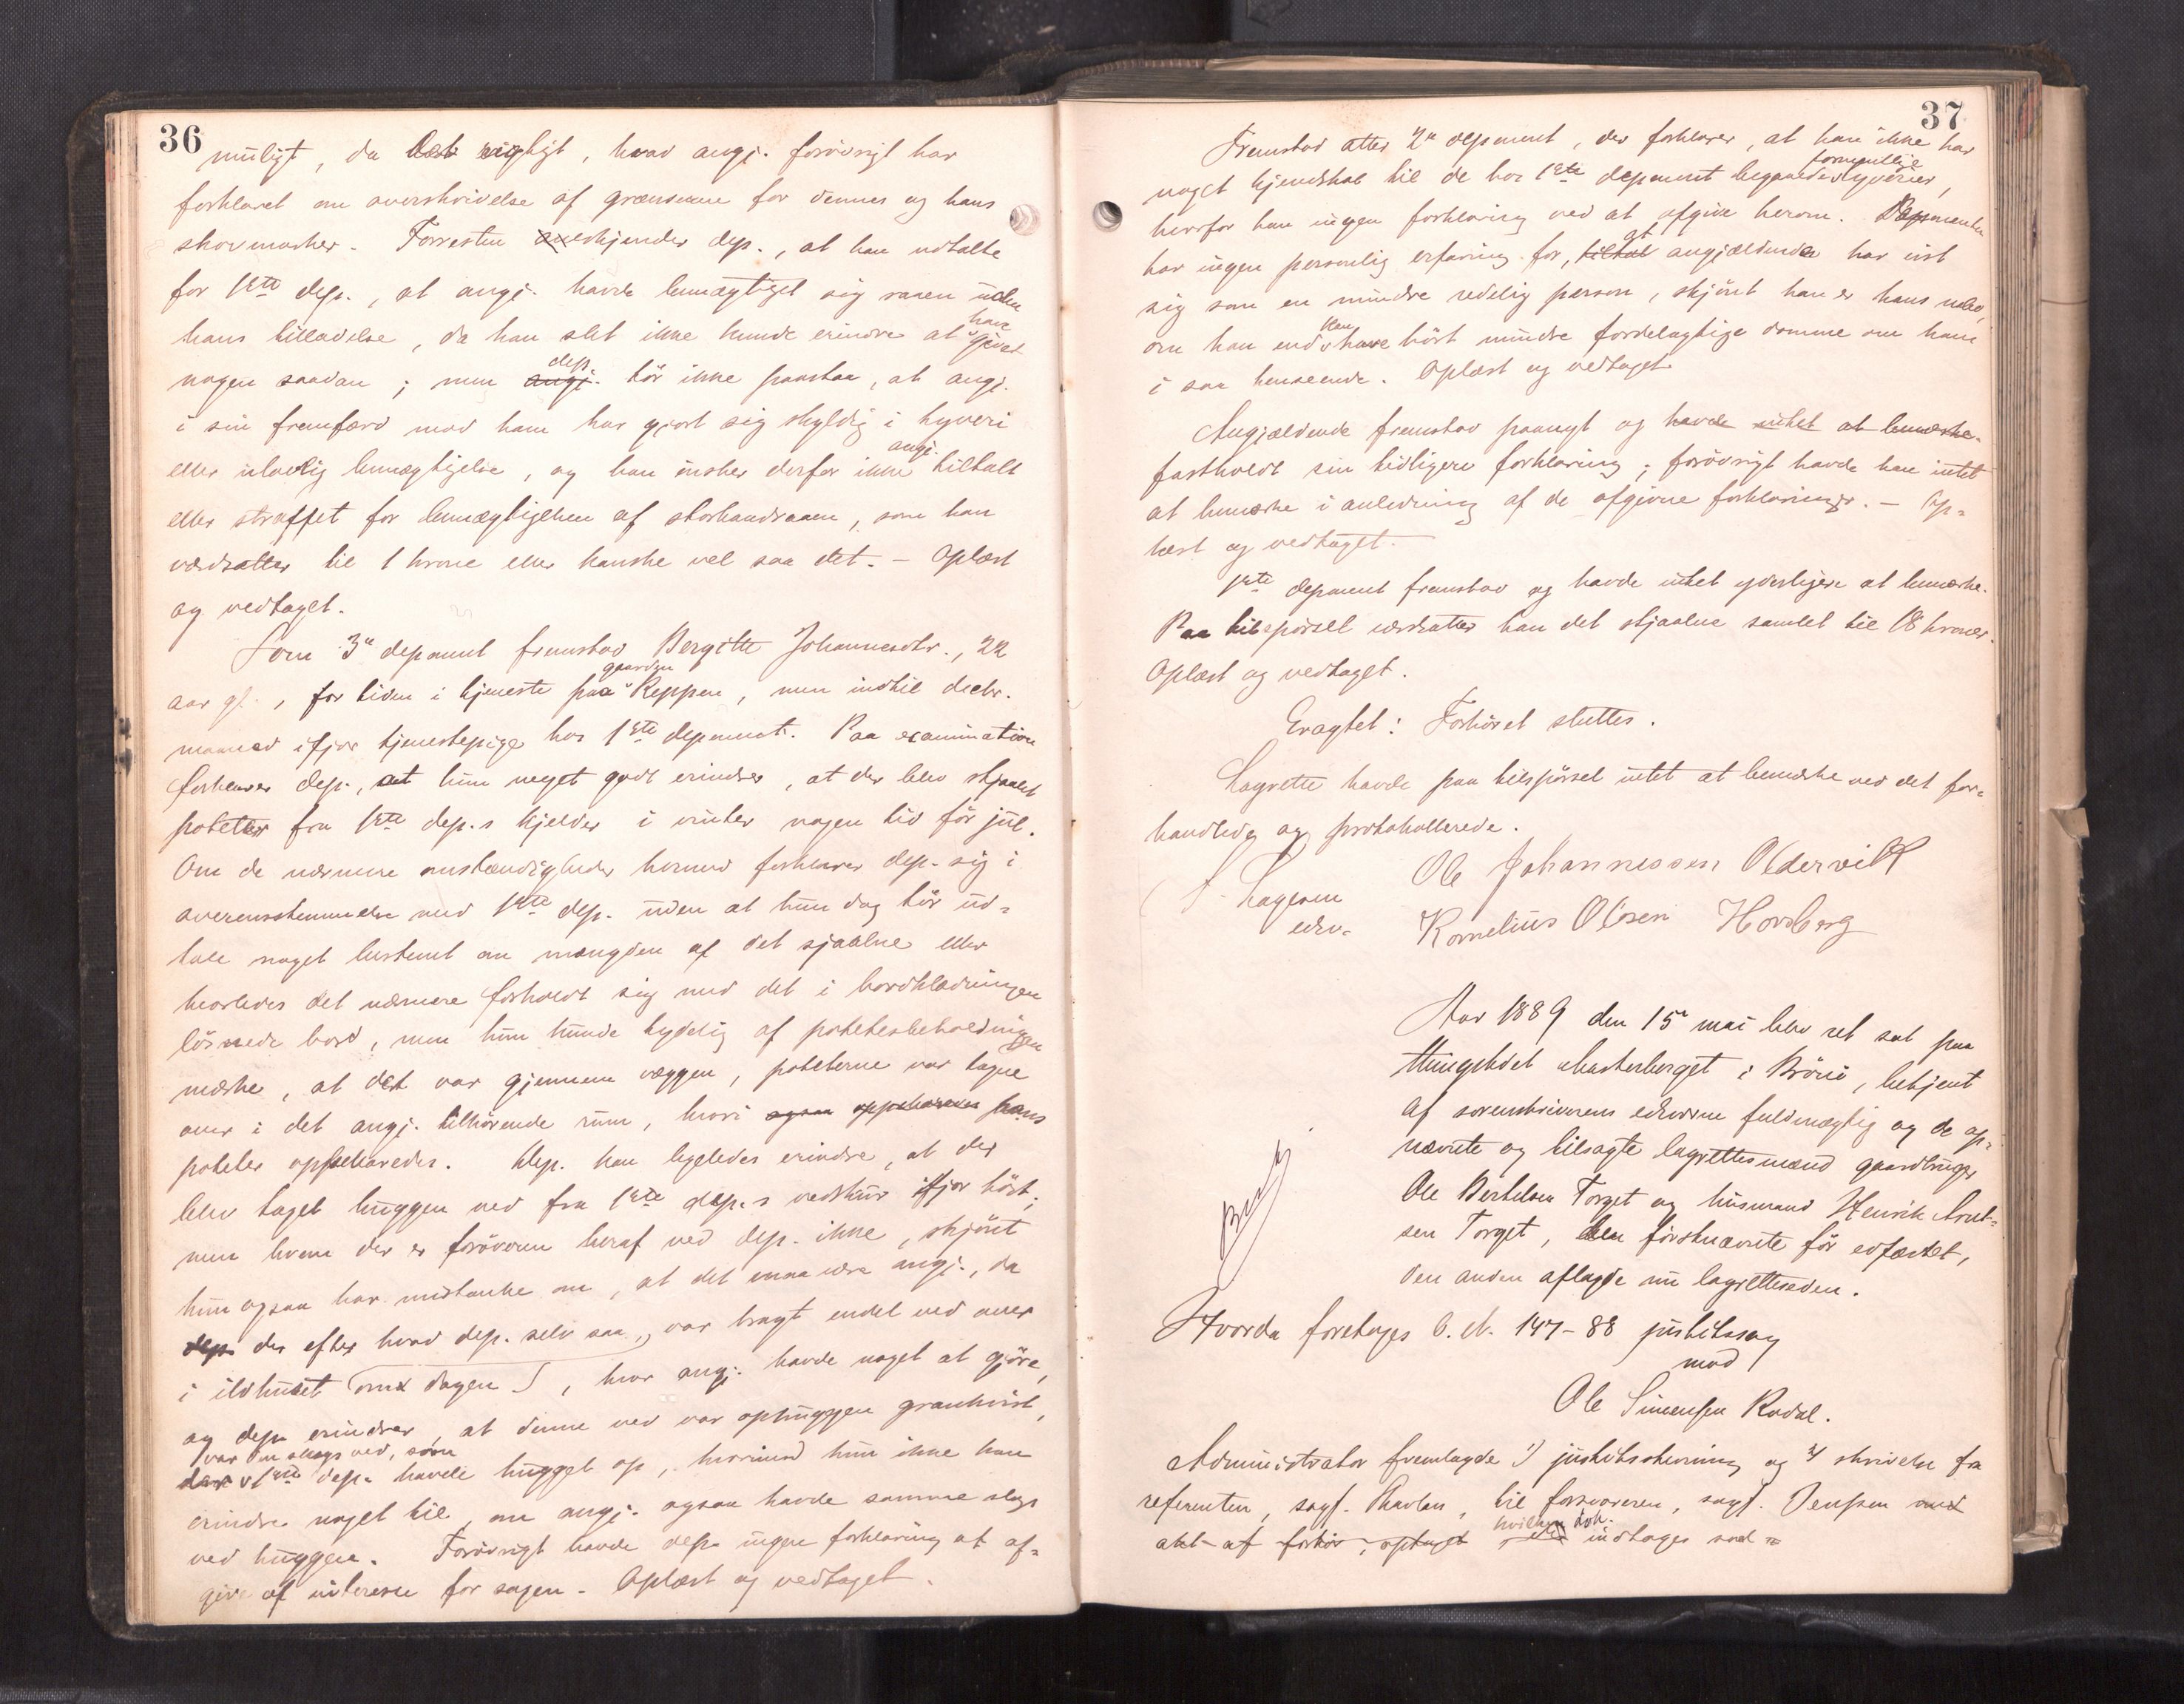 36
muligt, da det er rigtigt, hvad angj. forøvrigt har
forklaret om overskridelse af grænserne for dennes og hans
skovmarker. Forresten erkjender dep., at han udtalte
for 1ste dep., at angj. havde bemægtiget sig raaen uden
hans tilladelse, da han slet ikke kunde erindre at have givet
nogen saadan; men angj. dep. tør ikke paastaa, at angj.
i sin fremfærd mod ham har gjort sig skyldig i tyveri
eller ulovlig bemægtigelse, og han ønsker derfor ikke angj. tiltalt
eller straffet for bemægtigelsen af storhandraaen, som han
værdsætter til 1 krone eller kanske vel saa det. – Oplæst
og vedtaget.
Som 3e deponent fremstod Bergitte Johannesdtr., 22
aar gl., for tiden i tjeneste paa gaarden Reppen, men indtil decbr.
maaned ifjor tjenestepige hos 1ste deponent. Paa examination
forklarer dep., at hun meget godt erindrer, at der blev stjaalet
poteter fra 1ste dep.s kjelder i vinter nogen tid før jul.
Om de nærmere omstændigheder herved forklarer dep. sig i
overensstemmelse med 1ste dep. uden at hun dog tør ud-
tale noget bestemt om mængden af det sjaalne eller
hvorledes det nærmere forholdt sig med det i bordklædningen
løsnede bord, men hun kunde tydelig af potetesbeholdningen
mærke, at det var gjennem væggen, poteterne var tagne
over i det angj. tilhørende rum, hvori ogsaa oppebaredes hans
poteter opbevaredes. Dep. kan ligeledes erindre, at der
blev taget huggen ved fra 1ste dep.s vedskur ifjor høst,
men hvem der er forøveren heraf ved dep. ikke, skjønt
hun ogsaa har mistanke om, at det maa være angj., da
dep. der efter hvad dep. selv saa, var bragt endel ved over
i ildhuset (om dagen), hvor angj. havde noget at gjøre,
og dep. erindrer, at denne ved var ophuggen grankvist,
der var en slags ved, som 1ste dep. havde hugget op, hvorimod hun ikke kan
erindre noget til, om angj. ogsaa havde samme slags
ved huggen. Forøvrigt havde dep. ingen forklaring at af-
give af interesse for sagen. Oplæst og vedtaget.
37
Fremstod atter 2e deponent, der forklarer, at han ikke har
noget kjendskab til de hos 1ste deponent begaaede formentlige tyverier,
hvorfor han ingen forklaring ved at afgive herom. Deponenten
har ingen personlig erfaring for, tiltal at angjældende har vist
sig som en mindre redelig person, skjønt han er hans nabo,
om han end kan have hørt mindre fordelagtige domme om ham
i saa henseende. Oplæst og vedtaget.
Angjældende fremstod paanyt og havde intet at bemærke.
fastholdt sin tidligere forklaring; forøvrigt havde han intet
at bemærke i anledning af de afgivne forklaringer. – Op-
læst og vedtaget.
1ste deponent fremstod og havde intet yderligere at bemærke.
Paa tilspørsel værdsætter han det stjaalne samlet til 18 kroner.
Oplæst og vedtaget.
Eragtet: Forhøret sluttes.
Lagrette havde paa tilspørsel intet at bemærke ved det for-
handlede og protokollerede.
Ole Johannessen Oldervik
edsv. Kornelius Olsen Horsberg
Aar 1889 den 15e mai blev ret sat paa
thingstedet Mosterberget i Brønø, betjent
af sorenskriverens edsvorne fuldmægtig og de op-
nævnte og tilsagte lagrettesmænd gaardbruger
Ole Bertelsen Torget og husmand Henrik Arnt-
sen Torget, den førstnævnte før edfæstet,
den anden aflagde nu lagretteseden.
Hvorda foretoges C. N. 147-88 justitssag
mod
Ole Simensen Rodal.
Administrator fremlagde 1) justitsstevning og 2) skrivelse fra
referenten, sagf. Havlan, til forsvareren, sagf. Jenssen med
akt af forhør, optaget hvilken dok. indtages saal=